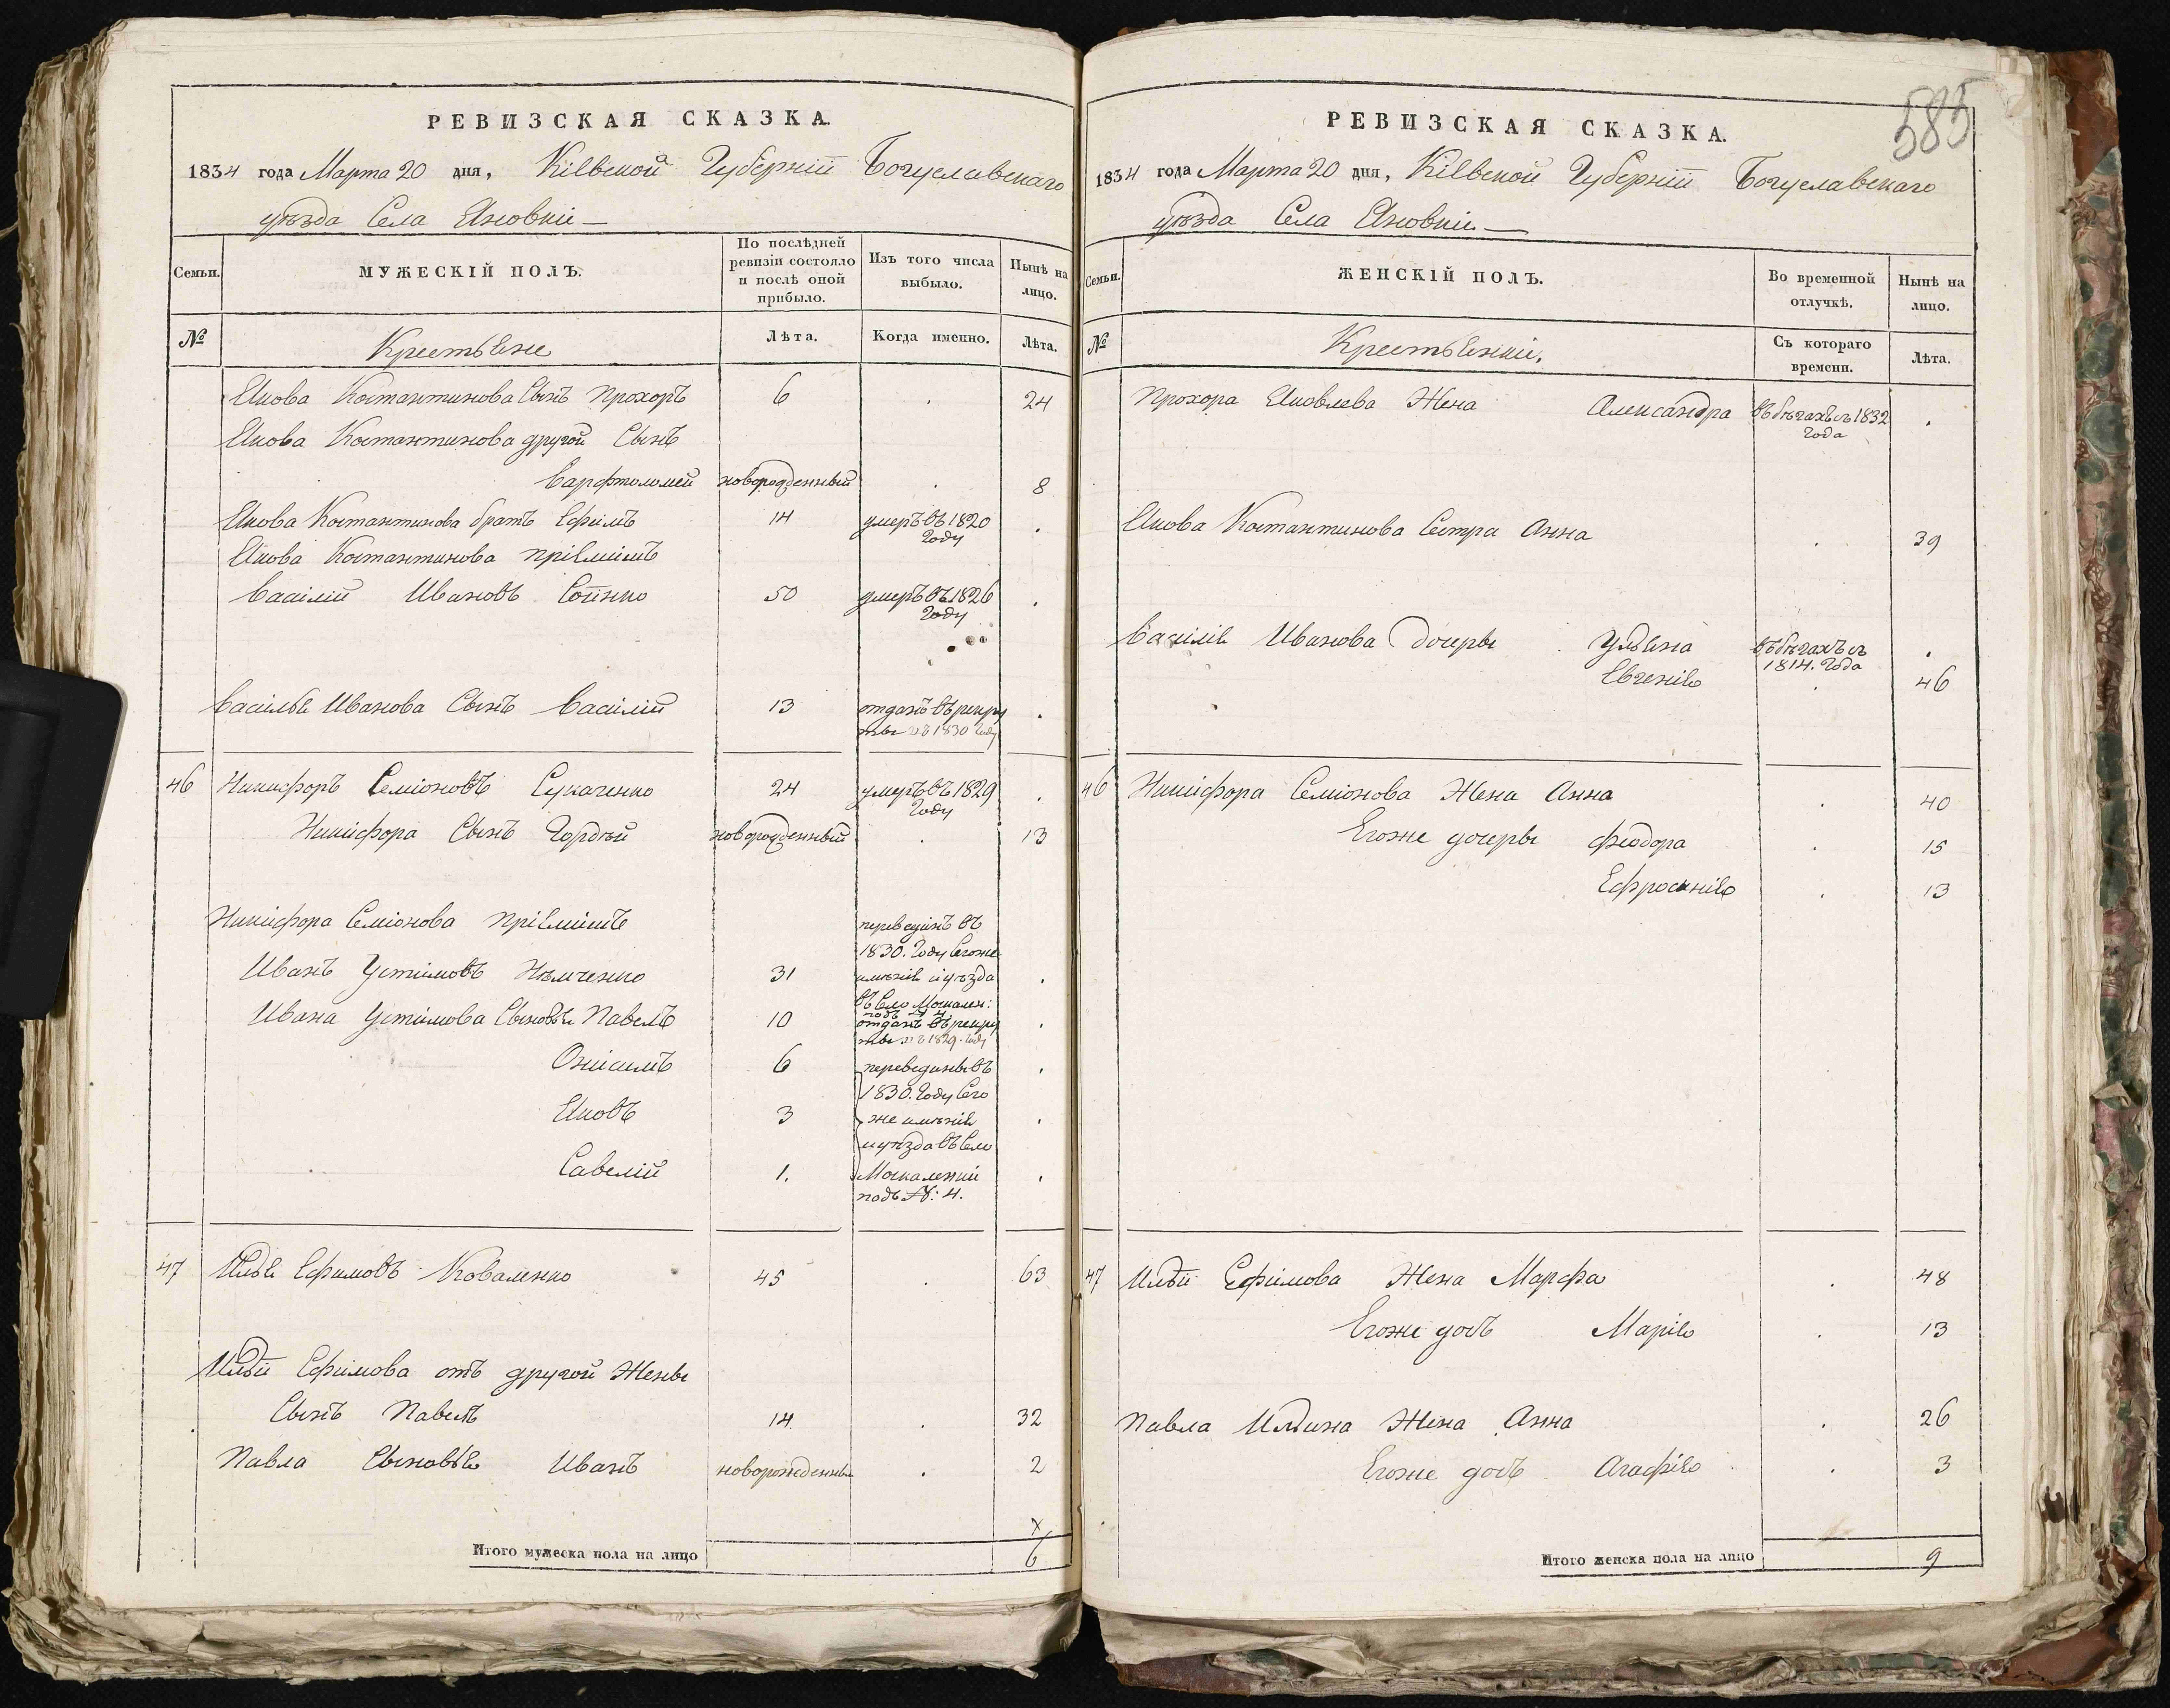 РЕВИЗСКАЯ СКАЗКА.
1834 года Марта 20 дня, Кіевской Губерніи Богуславскаго
уѣзда Села Яновки —
Семьи.
МУЖЕСКІЙ ПОЛЪ.
По послѣдней ревизіи состояло и послѣ оной прибыло.
Изъ того числа выбыло.
Нынѣ на лицо.
№
Крестьяне
Лѣта.
Когда именно.
Лѣта.
Якова Костантинова Сынъ Прохоръ 6 . 24
Якова Костантинова другой Сынъ
Варфтоломей новорожденный . 8
Якова Костантинова братъ Ефимъ 14 умеръ въ 1820 Году .
Якова Костантинова пріемышъ
Василій Ивановъ 50 умеръ въ 1826 Году .
Василья Иванова Сынъ Василій 13 отданъ въ рекруты въ 1830 Году .
46 Никифоръ Семіоновъ Сукаченко 24 умеръ въ 1829 Году .
Никифора Сынъ Гордѣй новорожденный . 13
Никифора Семіонова пріемышъ
Иванъ Устимовъ Нѣмченко 31 переведінъ въ 1830. Году Сегоже имѣнія и уѣзда въ Село Москален: подъ № 4 .
Ивана Устимова Сыновья Павелъ 10 отданъ въ рекруты въ 1829. Году .
Онисимъ 6 .
Яковъ 3 .
Савелій 1. .
переведены въ
1830. Году Сего
же имѣнія
и уѣзда въ Село
Москаленки
подъ №: 4.
47 Илья Ефимовъ Коваленко 45 . 63
Ильи Ефимова отъ другой Жены
Сынъ Павелъ 14 . 32
Павла Сыновья Иванъ новорожденны . 2
х
Итого мужеска пола на лицо 6
585
РЕВИЗСКАЯ СКАЗКА.
1834 года Марта 20 дня, Кіевской Губерніи Богуславскаго
уѣзда Села Яновки —
Семьи.
ЖЕНСКІЙ ПОЛЪ.
Во временной отлучкѣ.
Нынѣ на лицо.
№
Крестьянки.
Съ котораго времени.
Лѣта.
Прохора Яковлева Жена Александра въ бѣгахъ съ 1832 Года .
Якова Костантинова Сестра Анна . 39
Василія Иванова дочеры Ульяна въ бѣгахъ съ 1814. Года .
Евгенія . 46
46 Никифора Семіонова Жена Анна . 40
Егоже дочеры Феодора . 15
Ефросинія . 13
47 Ильи Ефимова Жена Марфа . 48
Егоже дочь Марія . 13
Павла Ильина Жена Анна . 26
Егоже дочь Агафія . 3
Итого женска пола на лицо 9